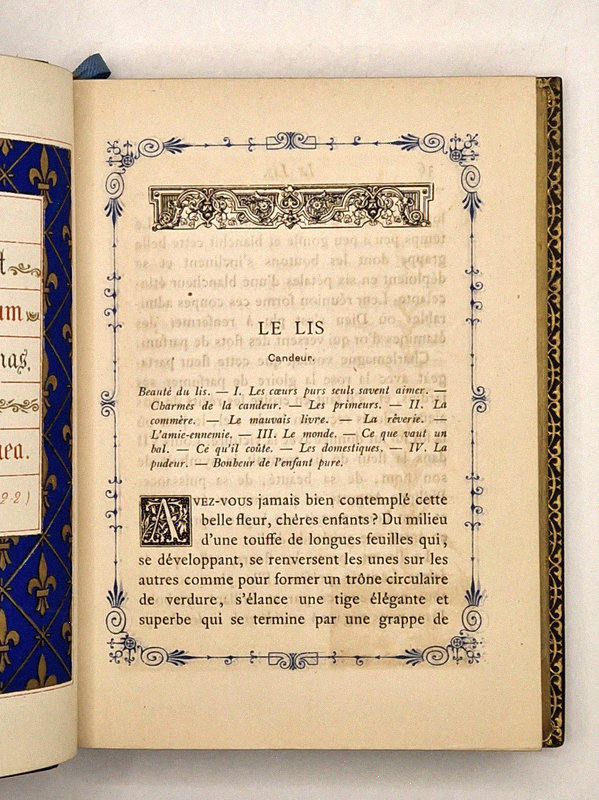 t
um
nas.
nea.
22)
LE LIS
Candeur.
Beauté du lis. — I. Les cœurs purs seuls savent aimer. —
Charmes de la candeur. — Les primeurs. — II. La
commère. — Le mauvais livre. — La rêverie. —
L'amie-ennemie. — III. Le monde. — Ce que vaut un
bal. — Ce qu'il coûte. — Les domestiques. — IV. La
pudeur. — Bonheur de l'enfant pure.
AVEZ-VOUS jamais bien contemplé cette
belle fleur, chères enfants? Du milieu
d'une touffe de longues feuilles qui,
se développant, se renversent les unes sur les
autres comme pour former un trône circulaire
de verdure, s'élance une tige élégante et
superbe qui se termine par une grappe de